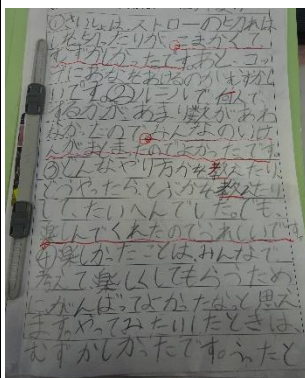 ①さいしょは、ストローの
たりが、こまかくて
むずかしかったです。あと、コッ
にあなをあけるのがむずかし
いです。②ルールで、何人で
するかが、あまり数があわ
なかったので、みんなのいけ
んがまとまったのでよかったです。
③どんなやり方かを教えたり
どうやったら、とぶかを教えたり
して、たいへんでした。でも、
楽しんでくれたのでうれしいです
④楽しかったことは、みんなで
考えて楽しくしてもらうため
がんばってよかったなと思え
ます。やってみたいしたときは、
むずかしかったです。